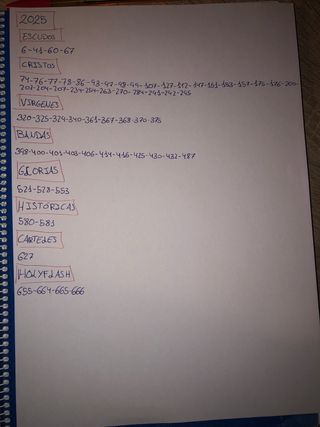 2025
ESCUDOS
6-41-60-67
CRISTOS
74-76-77-78-86-93-97-98-99-107-127-142-147-151-153-157-175-176-200-
202-204-207-234-254-263-270-284-241-242-245
VÍRGENES
320-325-329-340-361-367-368-370-375
BANDAS
398-400-401-403-406-414-416-425-430-432-487
GLORIAS
521-528-553
HISTÓRICAS
580-581
CARTELES
627
HOLYFLASH
655-664-665-666